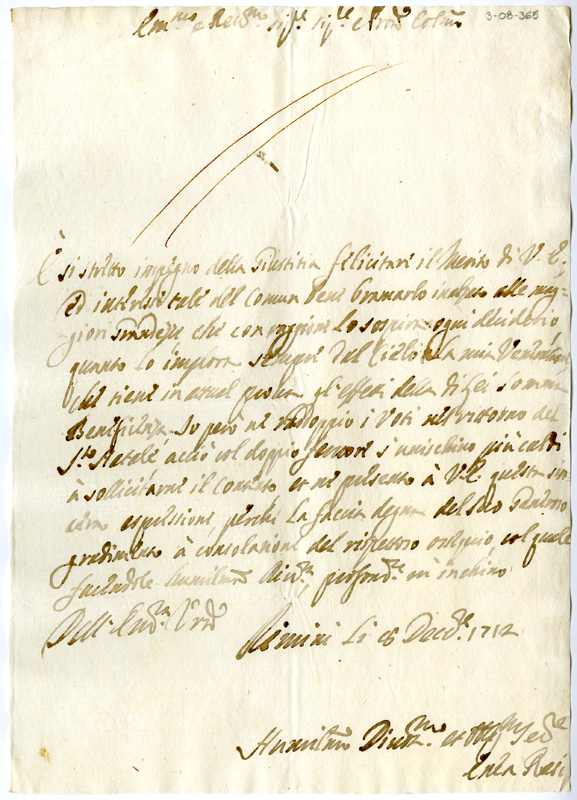 3-08-365
Em.mo e Rev.mo Sig.re Sig.re e Pron Colmo
È si stretto impegno della Giustitia felicitare il Merito di V. E.
ed interesse tale del Comun bene bramarlo inalzato alle mag
giori grandezze che con ragione lo sospira ogni desiderio
quanto lo implora sempre dal Cielo la mia Veneratione
che tiene in atual prova gli effetti della di Lei somma
Beneficienza. Io però ne raddoppio i Voti nel ritorno del
S.to Natale acciò col doppio fervore s'unischino più caldi
à sollicitarne il Contento et ne presento à V.E. questa sin
cera espressione perche la faccia degna del suo Generoso
gradimento à consolatione del rispettoso ossequio col quale
facendole humilma Riv.za profond.te m'inchino
Dell'Em.za V.ra
Rimini Li Dec.re 1712
Humilmo Divmo et Serre